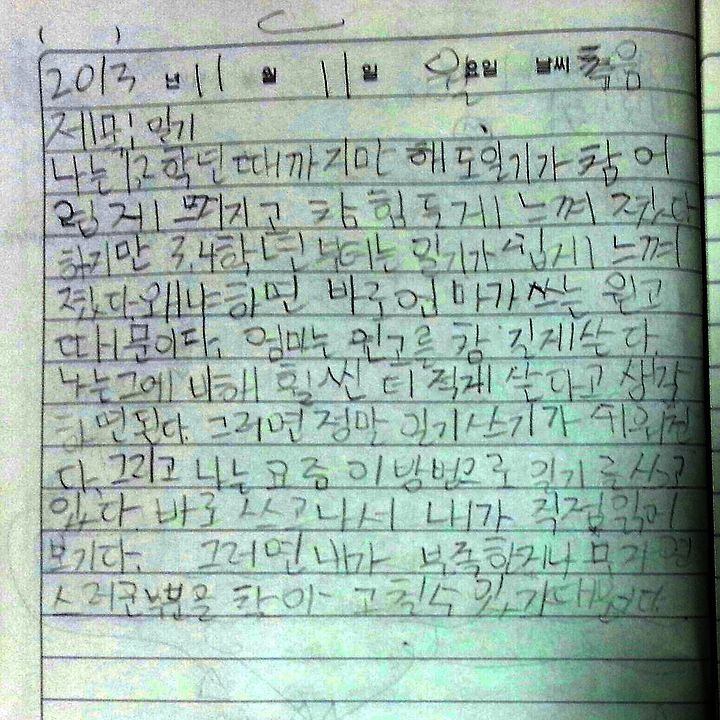 2013 년 11 월 11 일 월요일 날씨 추움
제목: 일기
나는 1,2학년 때까지만 해도 일기가 참 어
렵게 느껴 졌다
하지만 3,4학년 부터는 일기가 쉽게 느껴
졌다. 왜냐하면 바로 엄마가 쓰는 원고
때문이다. 엄마는 원고를 참 길게 쓴다.
나는 그에 비해 훨씬 더 적게 쓴다고 생각
하면 된다. 그러면 정말 일기쓰기가 쉬워진
다. 그리고 나는 요즘 이 방법으로 일기를 쓰고
있다. 바로 쓰고나서 내가 직접 읽어
보기다. 그러면 내가 부족하거나 부자연
스러운 부분을 찾아 고칠수 있기 때문이다.